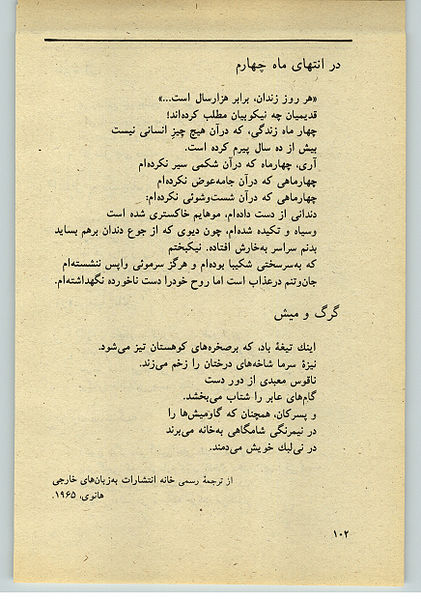 در انتهای ماه چهارم
«هر روز زندان، برابر هزارسال است...»
قدیمیان چه نیکوبیان مطلب کرده‌اند!
چهار ماه زندگی، که درآن هیچ چیز انسانی نیست
بیش از ده سال پیرم کرده است.
آری، چهارماه که درآن شکمی سیر نکرده‌ام
چهارماهی که درآن جامه‌عوض نکرده‌ام
چهارماهی که درآن شست‌وشوئی نکرده‌ام:
دندانی از دست داده‌ام، موهایم خاکستری شده است
وسیاه و تکیده شده‌ام، چون دیوی که از جوع دندان برهم بساید
بدنم سراسر به‌خارش افتاده. نیکبختم
که به‌سرسختی شکیبا بوده‌ام و هرگز سرموئی واپس ننشسته‌ام
جان‌وتنم درعذاب است اما روح خودرا دست ناخورده نگهداشته‌ام.
گرگ و میش
اینك تیغهٔ باد، که برصخره‌های کوهستان تیز می‌شود.
نیزهٔ سرما شاخه‌های درختان را زخم می‌زند.
ناقوس معبدی از دور دست
گام‌های عابر را شتاب می‌بخشد.
و پسرکان، همچنان که گاومیش‌ها را
در نیمرنگی شامگاهی به‌خانه می‌برند
در نی‌لبك خویش می‌دمند.
از ترجمهٔ رسمی خانه انتشارات به‌زبان‌های خارجی
هانوی، ۱۹۶۵.
۱۰۲